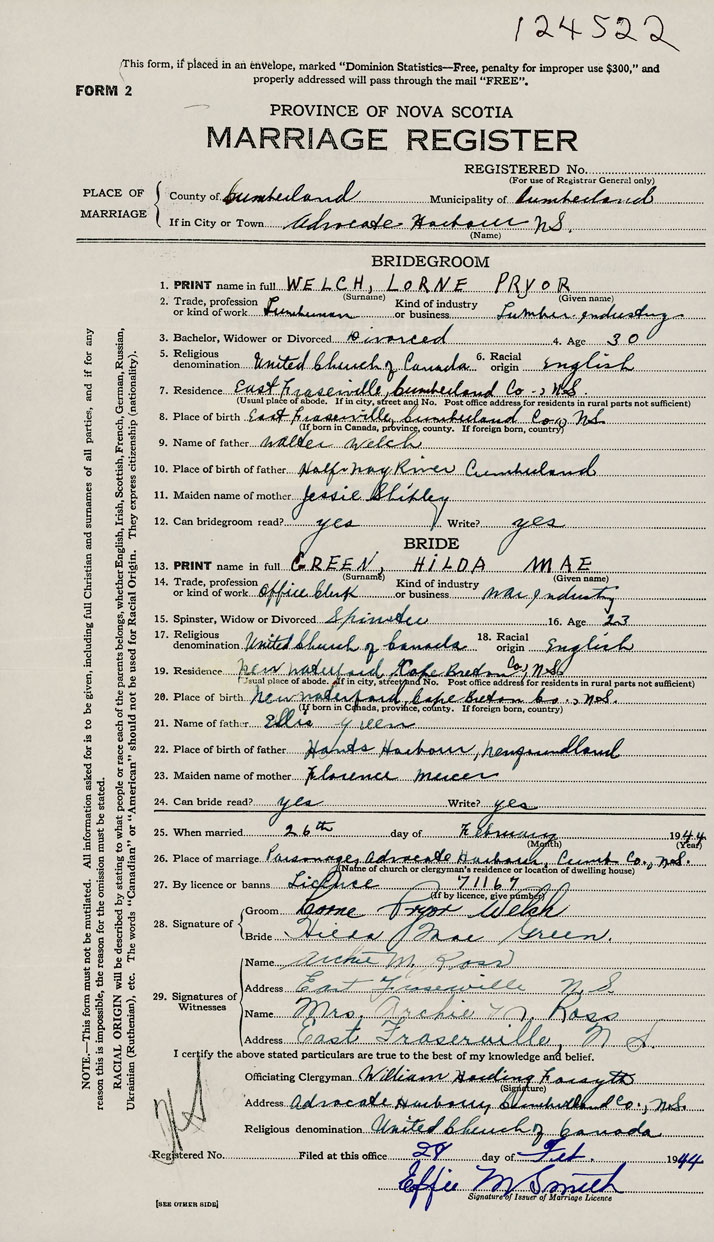 124522
This form, if placed in an envelope, marked “Dominion Statistics—Free, penalty for improper use $300,” and
properly addressed will pass through the mail “FREE”.
FORM 2
PROVINCE OF NOVA SCOTIA
MARRIAGE REGISTER
REGISTERED No.
(For use of Registrar General only)
PLACE OF MARRIAGE
County of Cumberland Municipality of Cumberland
If in City or Town Advocate Harbour N.S.
(Name)
BRIDEGROOM
1. PRINT name in full WELCH, LORNE PRYOR
(Surname) (Given name)
2. Trade, profession or kind of work Lumberman Kind of industry or business Lumber industry
3. Bachelor, Widower or Divorced Divorced 4. Age 30
5. Religious denomination United Church of Canada 6. Racial origin English
7. Residence East Fraserville, Cumberland Co., N.S.
(Usual place of abode. If in city, street and No. Post office address for residents in rural parts not sufficient)
8. Place of birth East Fraserville, Cumberland Co., N.S.
(If born in Canada, province, county. If foreign born, country)
9. Name of father Walter Welch
10. Place of birth of father Half-Way River Cumberland
11. Maiden name of mother Jessie Shipley
12. Can bridegroom read? yes Write? yes
BRIDE
13. PRINT name in full GREEN, HILDA MAE
(Surname) (Given name)
14. Trade, profession or kind of work Office Clerk Kind of industry or business War industry
15. Spinster, Widow or Divorced Spinster 16. Age 23
17. Religious denomination United Church of Canada 18. Racial origin English
19. Residence New Waterford, Cape Breton Co., N.S.
(Usual place of abode. If in city, street and No. Post office address for residents in rural parts not sufficient)
20. Place of birth New Waterford, Cape Breton Co., N.S.
(If born in Canada, province, county. If foreign born, country)
21. Name of father Ellis Green
22. Place of birth of father Hants Harbour, Newfoundland
23. Maiden name of mother Florence Mercer
24. Can bride read? yes Write? yes
25. When married 26th day of February 1944
(Month) (Year)
26. Place of marriage Parsonage, Advocate Harbour, Cumb. Co., N.S.
(Name of church or clergyman's residence or location of dwelling house)
27. By licence or banns Licence 71167
(If by licence, give number)
28. Signature of
Groom Lorne Pryor Welch
Bride Hilda Mae Green.
29. Signatures of Witnesses
Name Archie M. Ross
Address East Fraserville N.S.
Name Mrs. Archie M. Ross
Address East Fraserville, N S.
I certify the above stated particulars are true to the best of my knowledge and belief.
Officiating Clergyman William Harding Forsyth
(Signature)
Address Advocate Harbour, Cumberland Co., N.S.
Religious denomination United Church of Canada
Registered No. Filed at this office 28 day of Feb. 1944
Effie M Smith
Signature of Issuer of Marriage Licence
[SEE OTHER SIDE]
NOTE.—This form must not be mutilated. All information asked for is to be given, including full Christian and surnames of all parties, and if for any
reason this is impossible, the reason for the omission must be stated.
RACIAL ORIGIN will be described by stating to what people or race each of the parents belongs, whether English, Irish, Scottish, French, German, Russian,
Ukrainian (Ruthenian), etc. The words “Canadian” or “American” should not be used for Racial Origin. They express citizenship (nationality).